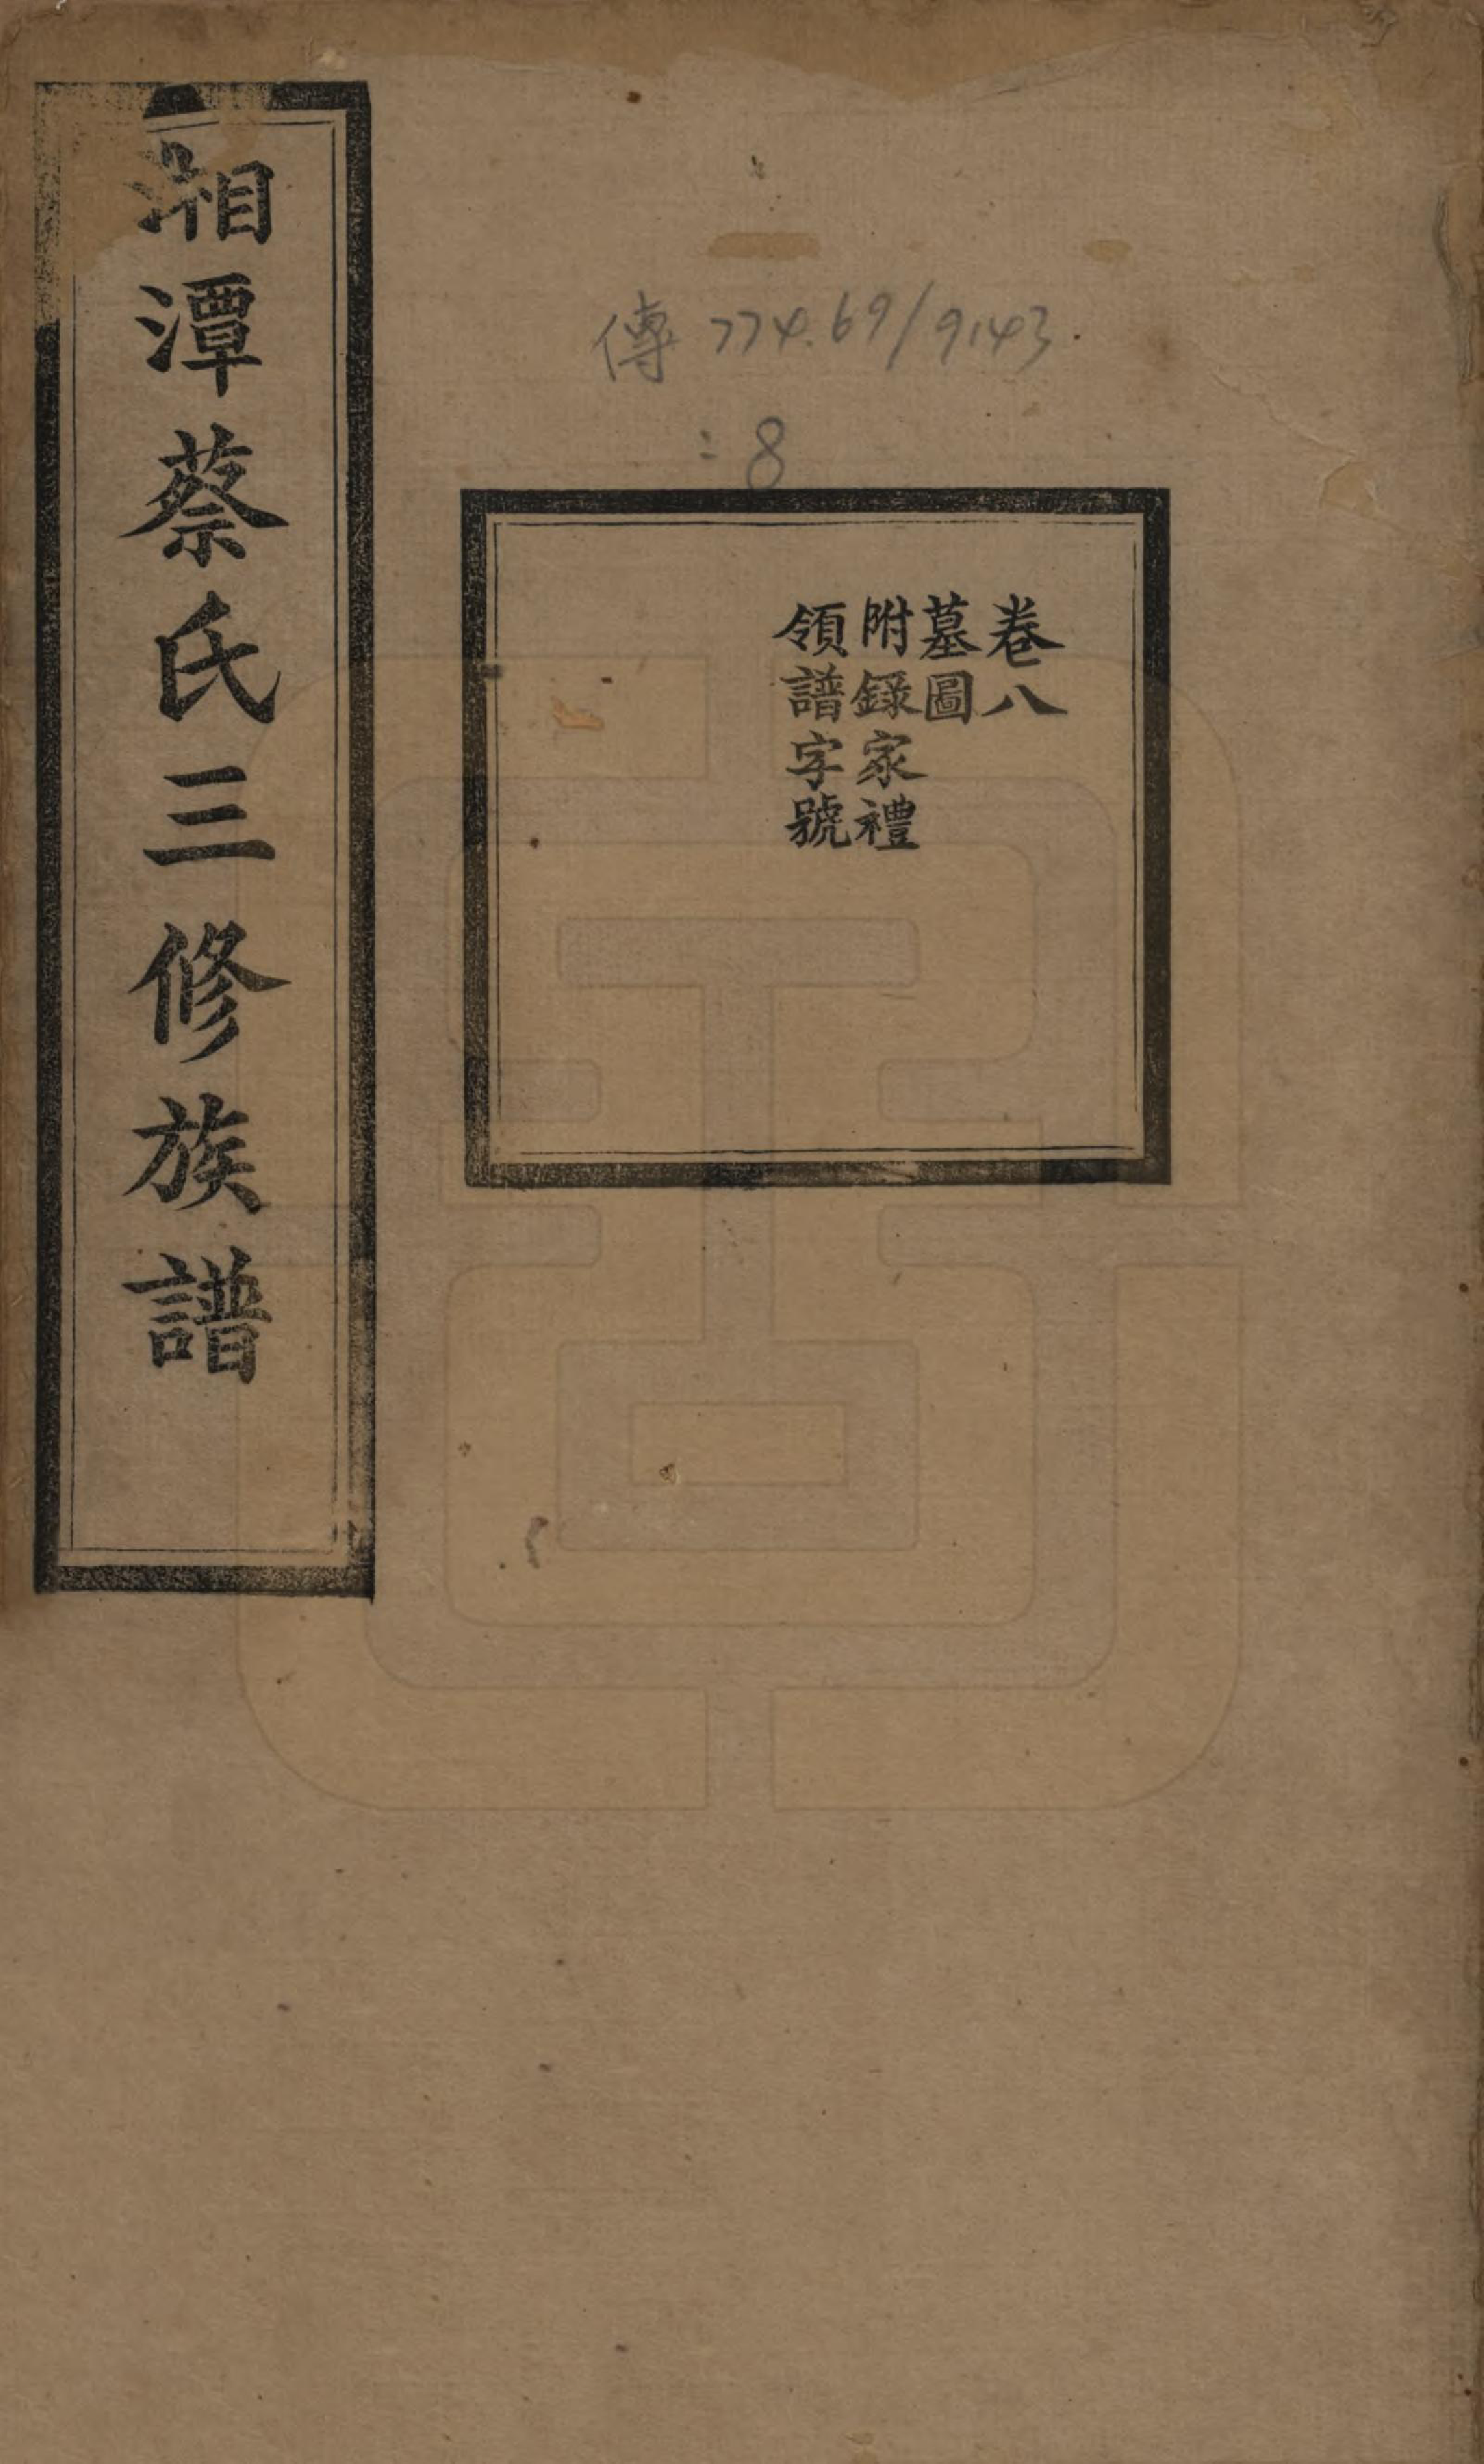 湘潭蔡氏三修族譜
傳 774.69/9143
:8
卷八
墓圖
附錄家禮
領譜字號